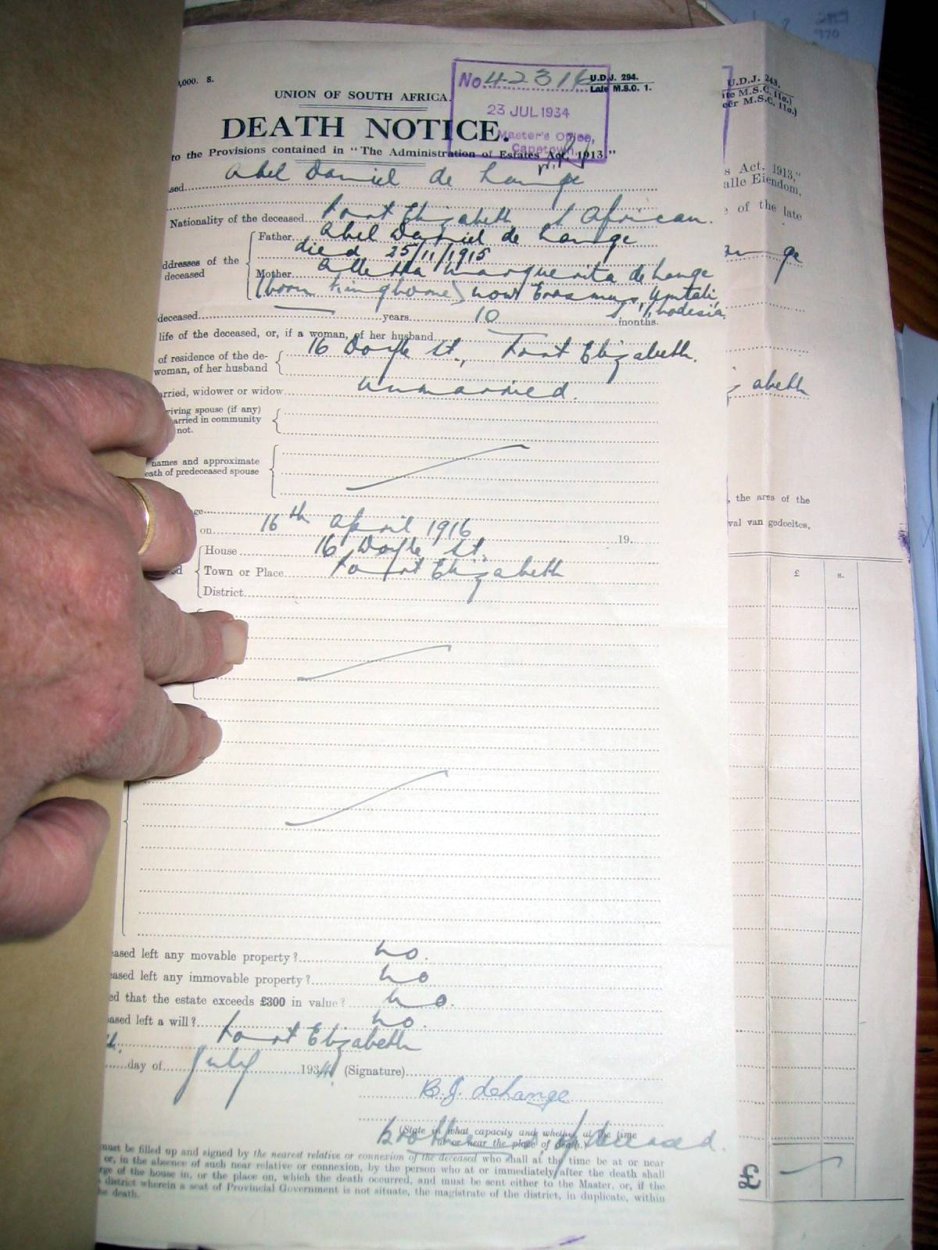 ,000. S.
No. 42316
U.D.J. 294.
Late M.S.C. 1.
UNION OF SOUTH AFRICA.
23 JUL 1934
DEATH NOTICE.
Master's Office,
Capetown.
to the Provisions contained in "The Administration of Estates Act, 1913."
sed Abel Daniel de Lange
Nationality of the deceased Port Elizabeth S African.
Father Abel Daniel de Lange
died 25/11/1915
ddresses of the
deceased
Mother Alletta Marguerita de Lange
(born Kinghorne) now Erasmus, Umtali,
S. Rhodesia,
deceased — years 10 months.
life of the deceased, or, if a woman, of her husband
of residence of the de- 16 Doyle St., Port Elizabeth.
woman, of her husband
rried, widower or widow unmarried.
viving spouse (if any)
arried in community
not.
names and approximate
eath of predeceased spouse
ge
on 16th April 1916 19
House 16 Doyle St.
ed Town or Place Port Elizabeth
District
ased left any movable property? No.
ased left any immovable property? No
ed that the estate exceeds £300 in value? No.
ased left a will? No.
th. Port Elizabeth
day of July 1934. (Signature)
B.J. deLange
(State in what capacity and whether at the time
brother of deceased.
or near the place of death.)
must be filled up and signed by the nearest relative or connexion of the deceased who shall at the time be at or near
or, in the absence of such near relative or connexion, by the person who at or immediately after the death shall
rge of the house in, or the place on, which the death occurred, and must be sent either to the Master, or, if the
district wherein a seat of Provincial Government is not situate, the magistrate of the district, in duplicate, within
he death.
U.D.J. 243.
te M.S.C. 11a.)
eër M.S.C. 11a.)
s Act, 1913,"
alle Eiendom,
of the late
nge
abeth
, the area of the
val van gedeeltes,
£ s.
£